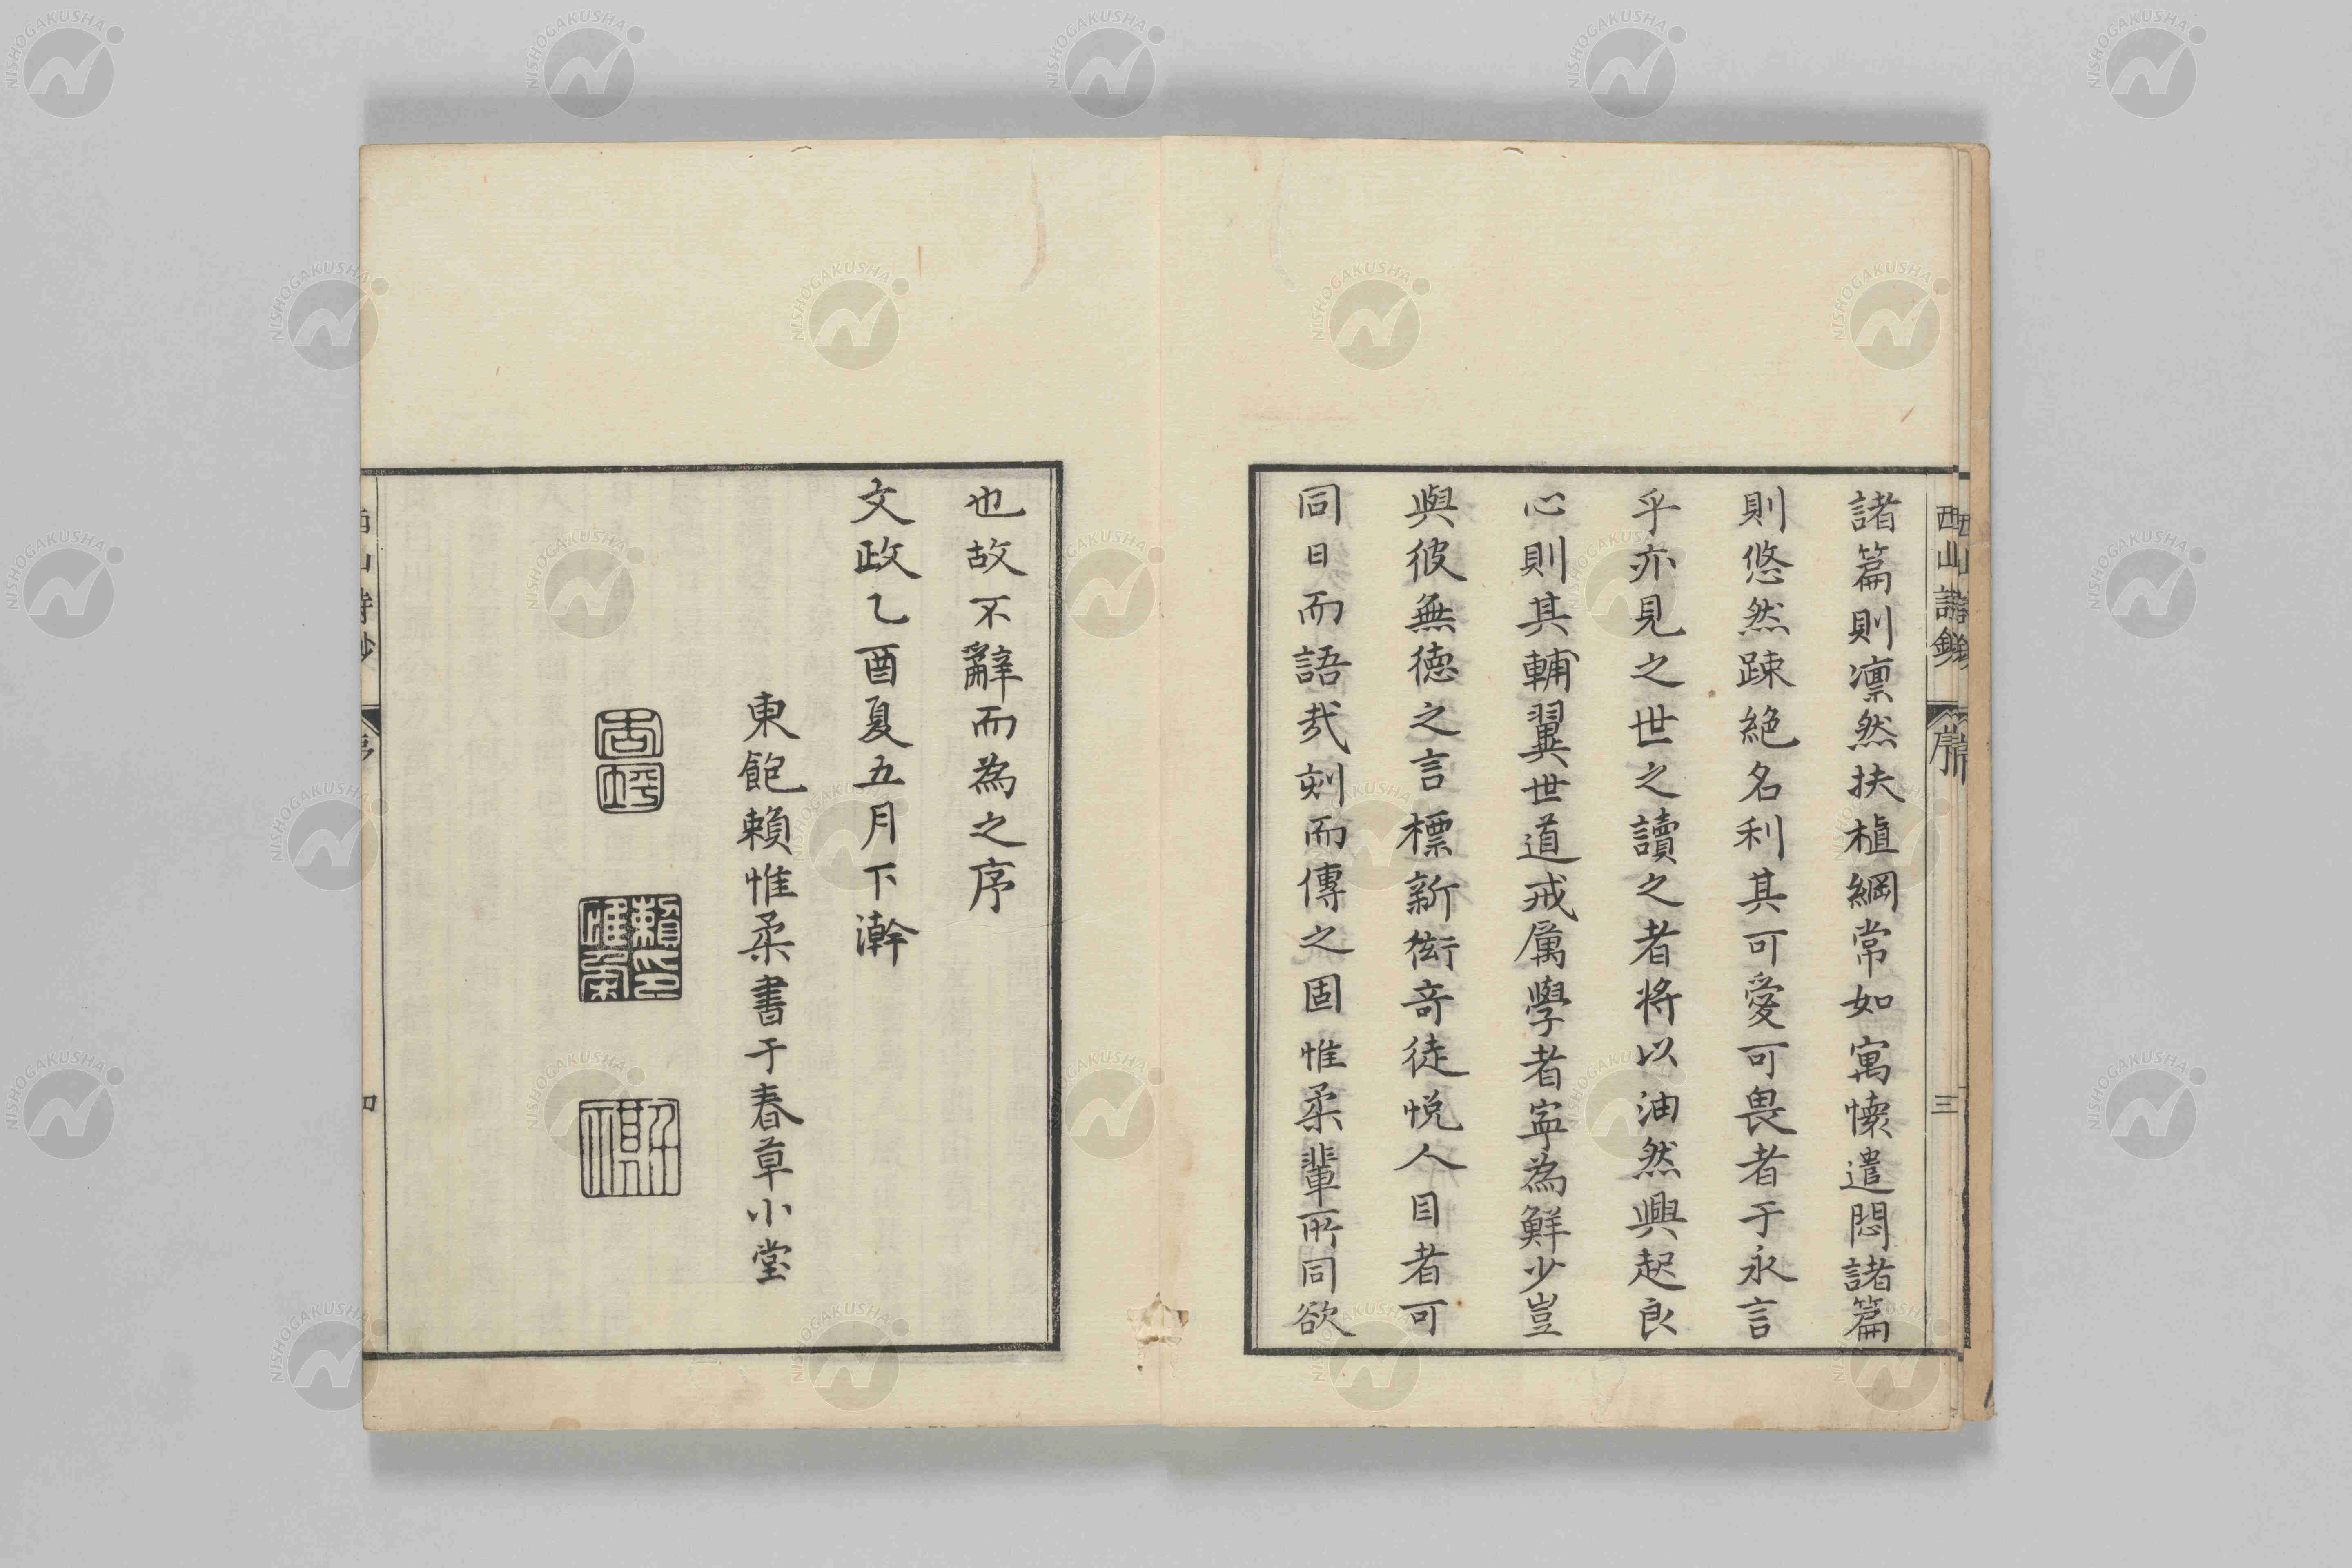 諸篇則凛然扶植綱常如寓懷遣悶諸篇
則悠然踈絶名利其可愛可畏者于永言
乎亦見之世之讀之者将以油然興起良
心則其輔翼世道戒厲學者寧為鮮少豈
與彼無德之言標新衒奇徒悦人目者可
同日而語㦲刻而傳之固惟柔輩所同欲
也故不辭而為之序
文政乙酉夏五月下澣
東飽賴惟柔書于春草小堂
杏坪
賴惟柔印
西山詩鈔
序
三
NISHOGAKUSHA